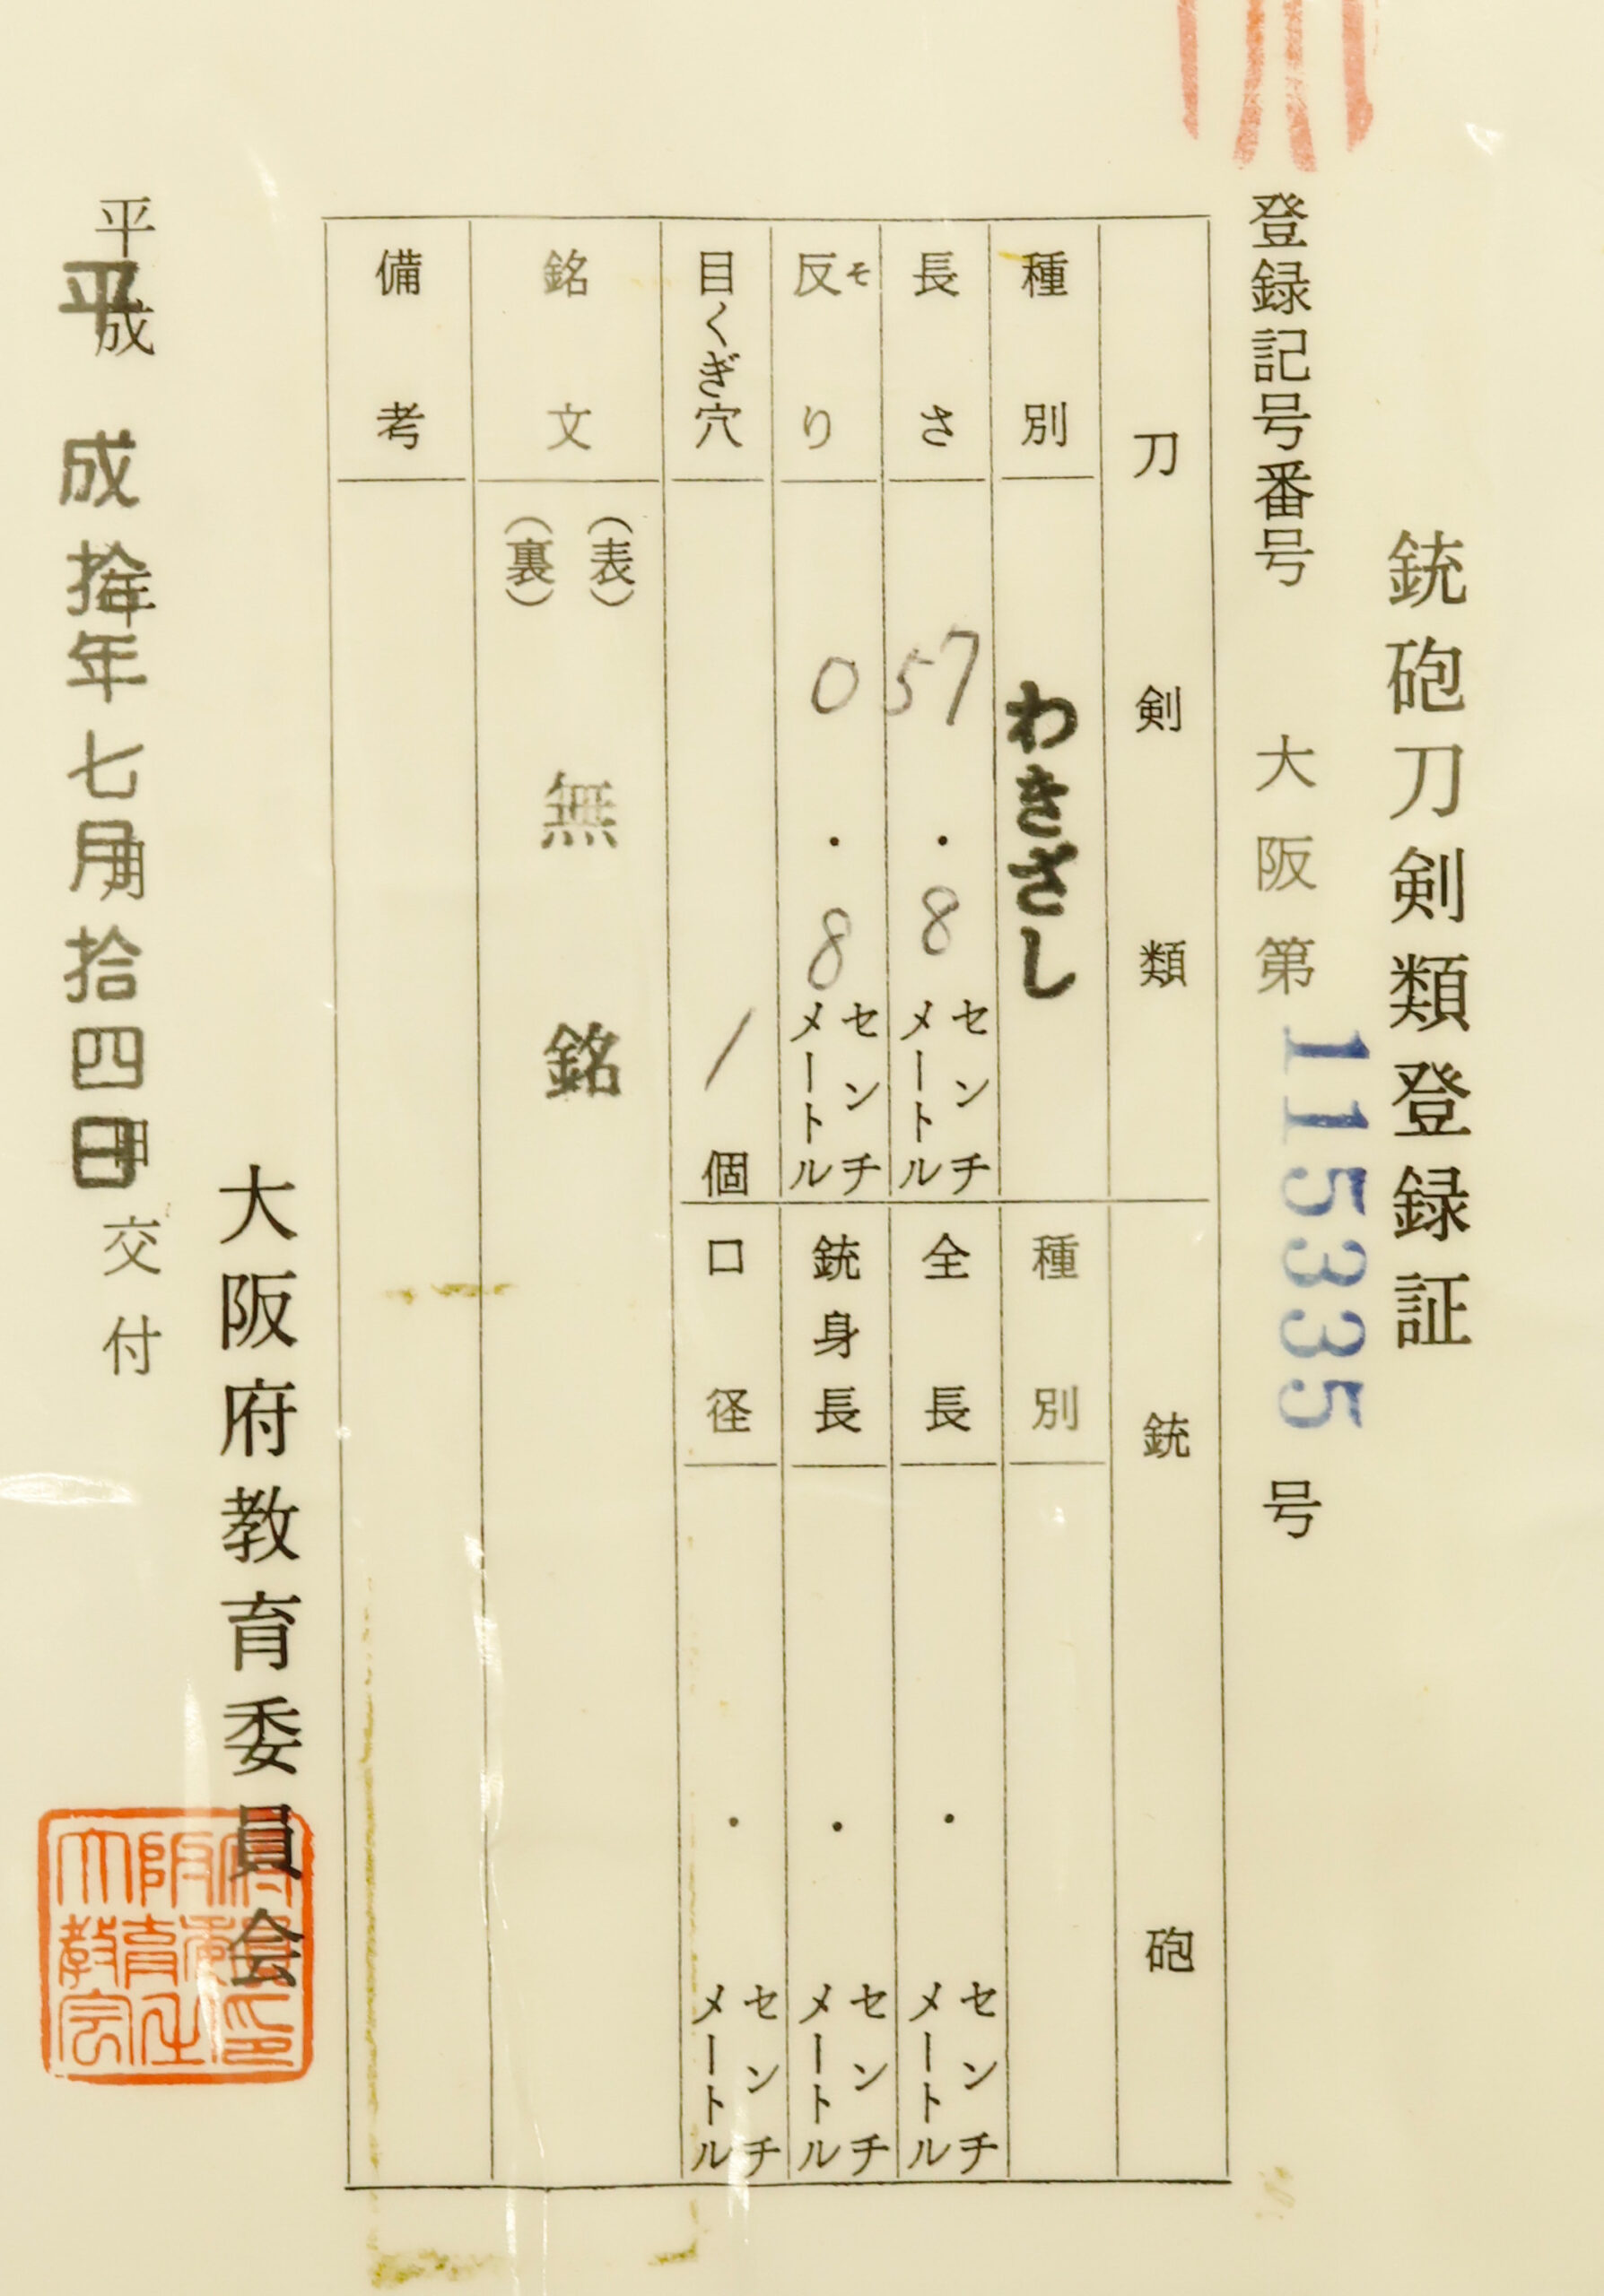 銃砲刀剣類登録証
登録記号番号 大阪第115335号
刀剣類
種別 わきざし
長さ 57.8 センチメートル
反り ソ 0.8 センチメートル
目くぎ穴 1個
銘文 (表) (裏) 無銘
備考
銃砲
種別
全長 . センチメートル
銃身長 . センチメートル
口径 . センチメートル
大阪府教育委員会
平成 年 月 日 交付
平成拾年七月拾四日